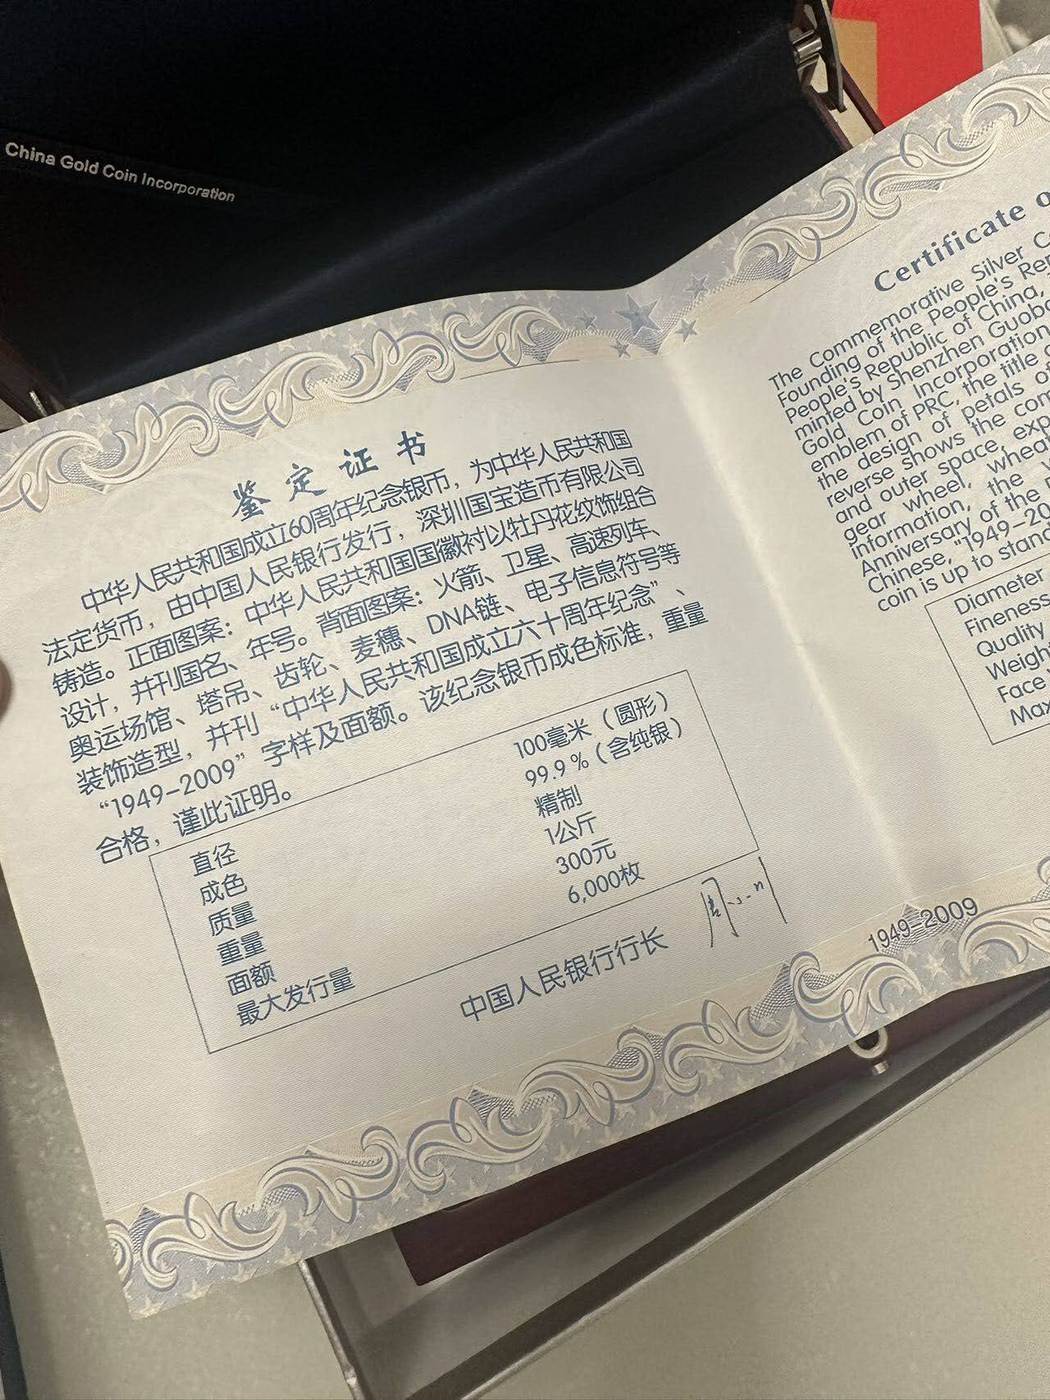 China Gold Coin Incorporation
鉴定证书
中华人民共和国成立60周年纪念银币，为中华人民共和国
法定货币，由中国人民银行发行，深圳国宝造币有限公司
铸造。正面图案：中华人民共和国国徽衬以牡丹花纹饰组合
设计，并刊国名、年号。背面图案：火箭、卫星、高速列车、
奥运场馆、塔吊、齿轮、麦穗、DNA链、电子信息符号等
装饰造型，并刊“中华人民共和国成立六十周年纪念”、
“1949-2009”字样及面额。该纪念银币成色标准，重量
合格，谨此证明。
直径 100毫米（圆形）
成色 99.9％（含纯银）
质量 精制
重量 1公斤
面额 300元
最大发行量 6,000枚
中国人民银行行长 周小川
Certificate o
The Commemorative Silver C
Founding of the People's Rep
People's Republic of China,
minted by Shenzhen Guoba
Gold Coin Incorporation
emblem of PRC, the title
the design of petals of
reverse shows the com
and outer space exp
gear wheel, whea
information, the
Anniversary of the
Chinese, "1949-20
coin is up to stand
Diameter
Fineness
Quality
Weigh
Face
Max
1949-2009